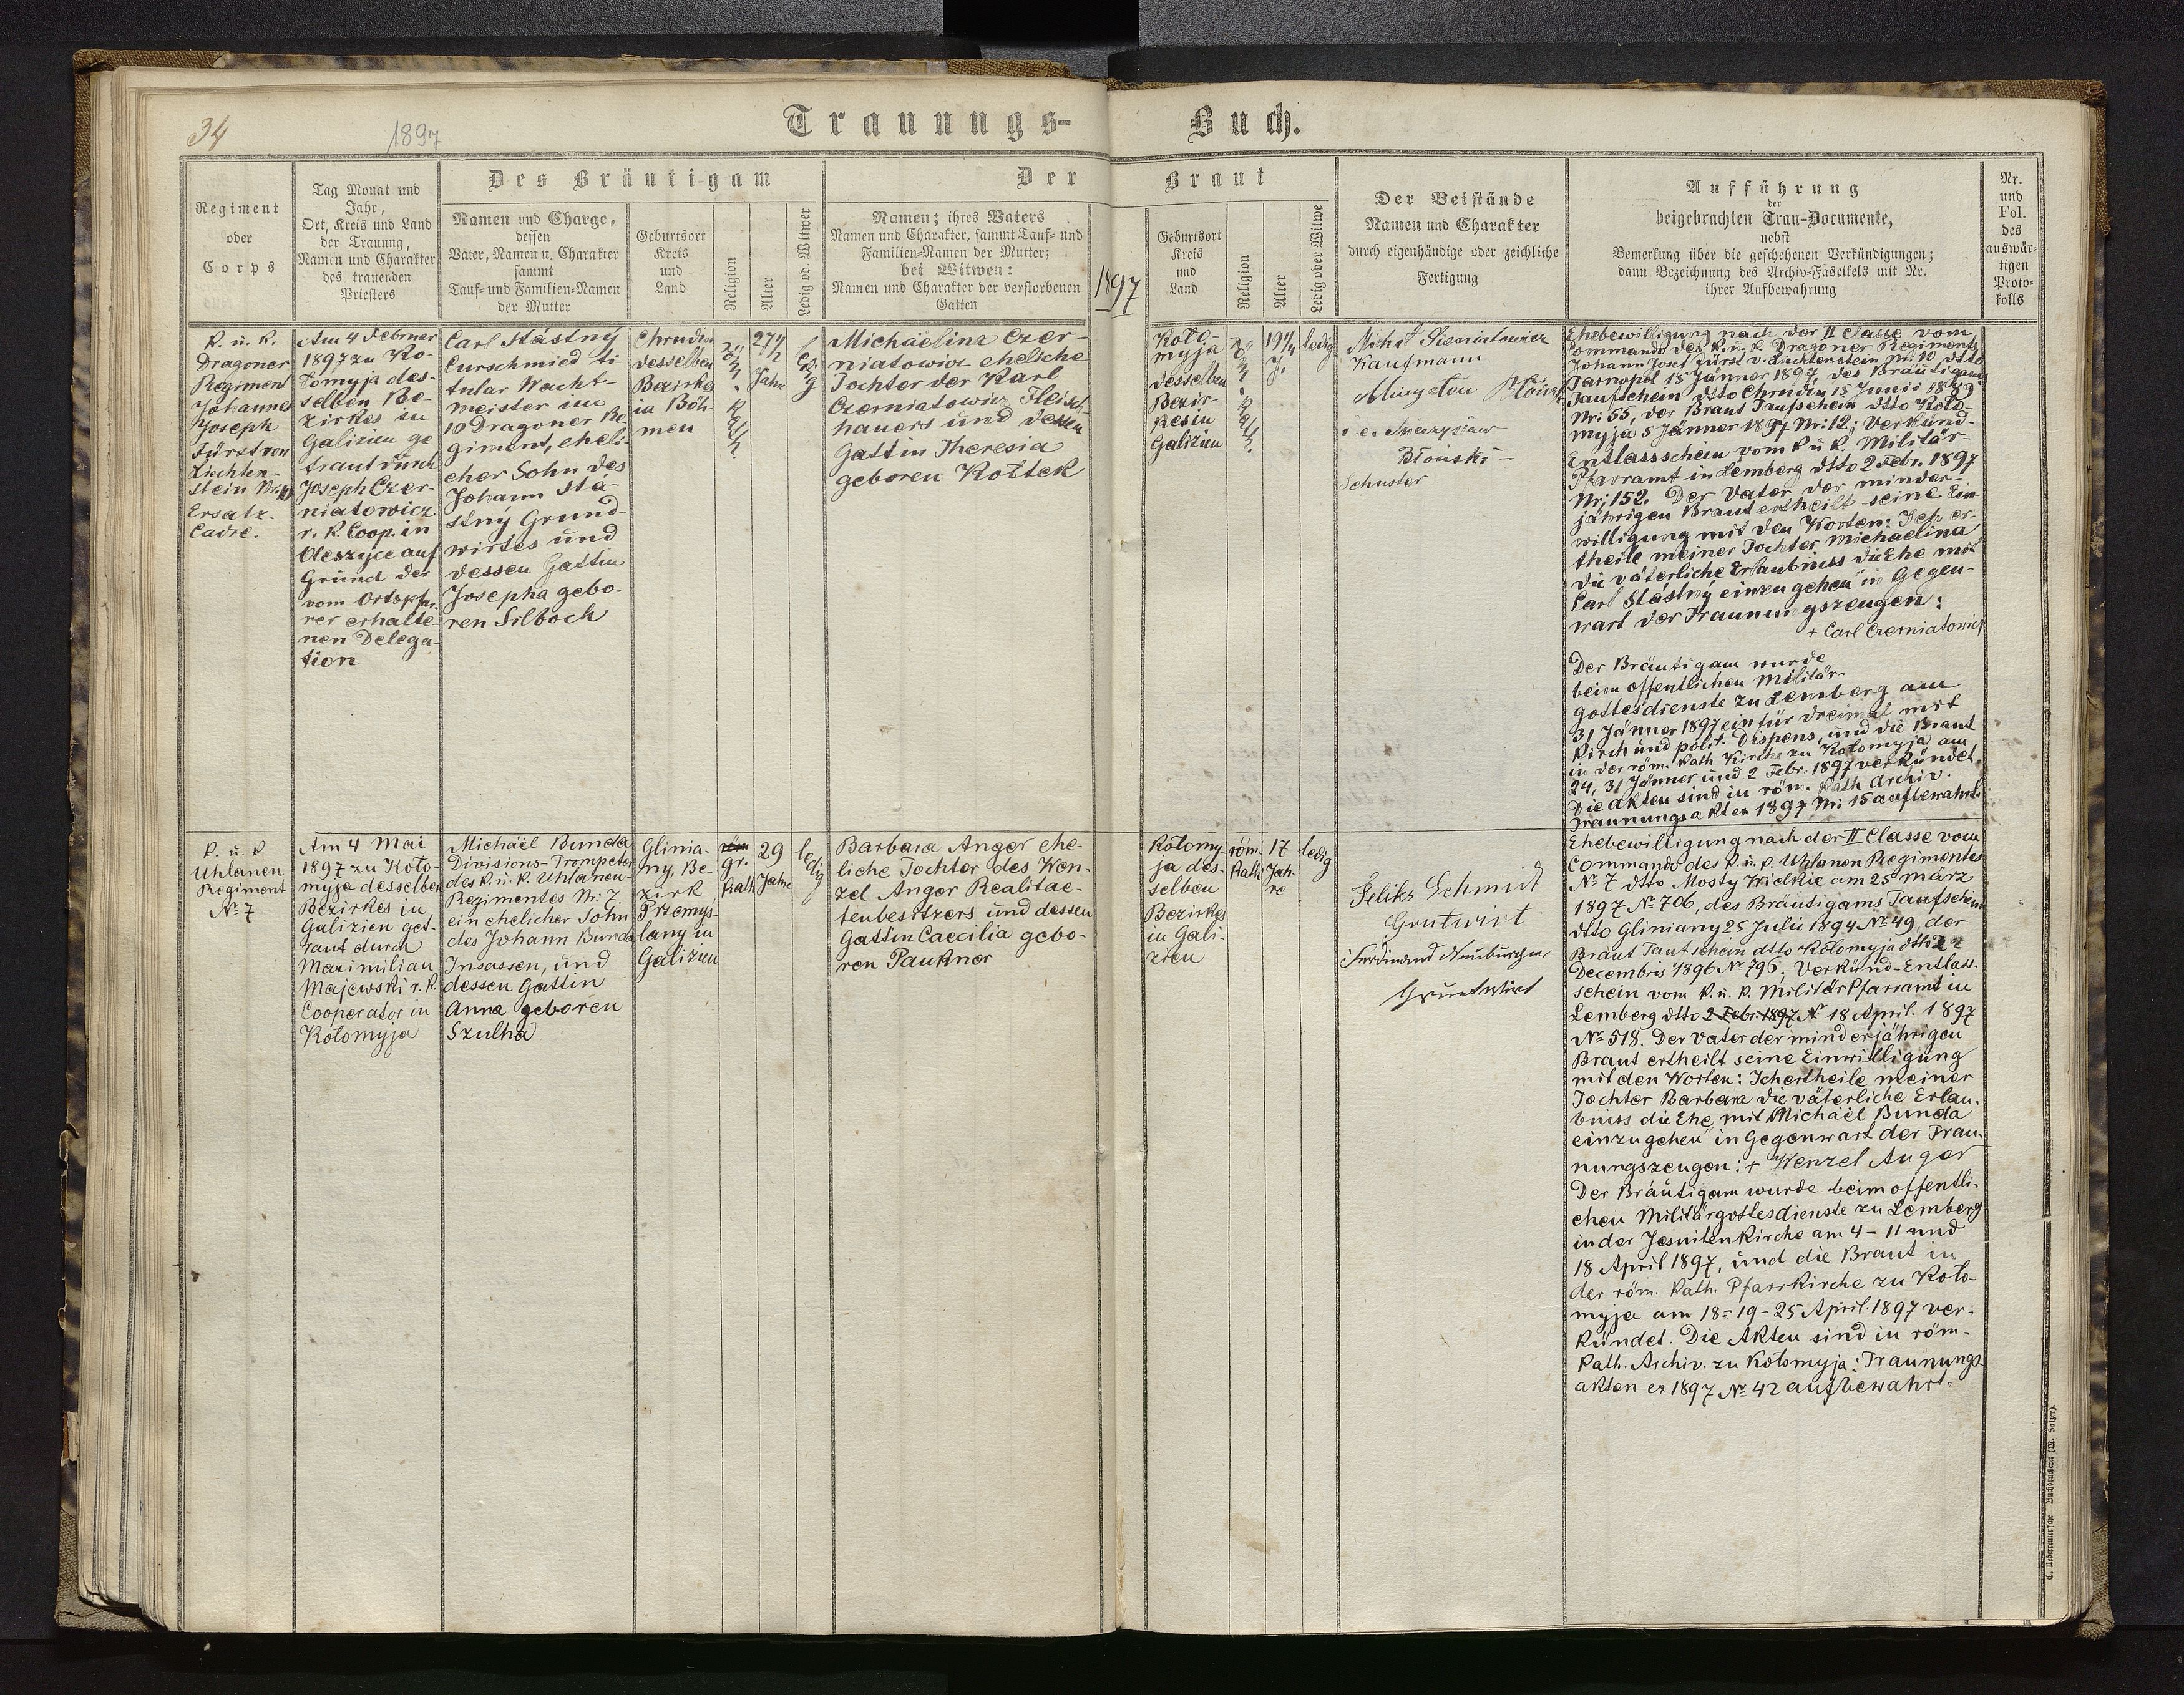 34
1897
Trauungs-
Buch.
Regiment
oder
Corps
Tag Monat und
Jahr,
Ort, Kreis und Land
der Trauung,
Namen und Charakter
des trauenden
Priesters
Des Bräutigam
Namen und Charge,
dessen
Vater, Namen u. Charakter
sammt
Tauf- und Familien-Namen
der Mutter
Geburtsort
Kreis
und
Land
Religion
Alter
Ledig od. Witwer
Der
Braut
Namen; ihres Vaters
Namen und Charakter, sammt Tauf- und
Familien-Namen der Mutter;
bei Witwen:
Namen und Charakter der verstorbenen
Gatten
1897
Geburtsort
Kreis
und
Land
Religion
Alter
Ledig oder Witwe
Der Beistände
Namen und Charakter
durch eigenhändige oder zeichliche
Fertigung
Aufführung
der
beigebrachten Trau-Documente,
nebst
Bemerkung über die geschehenen Verkündigungen;
dann Bezeichnung des Archiv-Fascikels mit Nr.
ihrer Aufbewahrung
Nr.
und
Fol.
des
auswär-
tigen
Proto-
kolls
K. u. K.
Dragoner
Regiment
Johannes
Joseph
Fürst von
Liechten-
stein Nr. 10
Ersatz-
Cadre.
Am 4 Februer
1897 zu Ko-
lomyja des-
selben Be-
zirkes in
Galizien ge
traut durch
Joseph Czer-
niatowicz
r. K Coop. in
Oleszyce auf
Grund der
vom Ortspfar-
rer erhalte-
nen Delega-
tion
Carl Stástný
Curschmied ti-
tular Wacht-
meister im
10 Dragoner Re-
giment, eheli-
cher Sohn des
Johann Stá-
stný Grund-
wirtes und
dessen Gattin
Josepha gebo-
ren Silboch
Chrudim
desselben
Bezirkes
in Böh-
men
röm.
kath.
27 1/2
Jahre
ledig
Michaëlina Czer-
niatowicz eheliche
Tochter der Karl
Czerniatowicz Fleisch-
hauers und dessen
Gattin Theresia
geboren Kołtek
Koło-
myja
desselben
Bezir-
kes in
Galizien
röm.
kath.
19 1/4
J.
ledig
Kaufmann
Błoński
Mieczysław
Błoński –
Schuster
Ehebewilligung nach der II Classe vom
Commando des K. u. K. Dragoner Regiments
Johann Josef Fürst v. Liechtenstein Nr: 10 dtto
Tarnopol 15 Jänner 1897, des Bräutigams
Taufschein dtto Chrudim 15 Junii 1889
Nr: 55, der Braut Taufschein dtto Koło-
myja 5 Jänner 1897 Nr: 12; Verkünd-
Entlassschein vom K u K. Militär-
Pfarramt in Lemberg dtto 2 Febr. 1897
Nr: 152. Der Vater der minder-
jährigen Braut ertheilt seine Ein-
willigung mit den Worten: Ich er-
theile meiner Tochter Michaelina
die väterliche Erlaubniss die Ehe mit
Carl Stástný einzugehen in Gegen-
wart der Trauungszeugen:
+ Carl Czerniatowicz
Der Bräutigam wurde
beim offentlichen Militär-
gottesdienste zu Lemberg am
31 Jänner 1897 ein für dreimal mit
Kirch und polit. Dispens, und die Braut
in der röm. Kath Kirche zu Kołomyja am
24, 31 Jänner und 2 Febr. 1897 verkündet.
Die Akten sind in röm. Kath Archiv.
Trauungsakten 1897 Nr: 15 aufbewahrt.
K. u. K
Uhlanen
Regiment
No 7
Am 4 Mai
1897 zu Koło-
myja desselben
Bezirkes in
Galizien get-
raut durch
Maximilian
Majewski r. k.
Cooperator in
Kołomyja
Michaël Bunda
Divisions-Trompeter
des K. u. K. Uhlanen-
Regimentes Nr. 7.
ein ehelicher Sohn
des Johann Bunda
Insassen, und
dessen Gattin
Anna geboren
Szulha
Glinia-
ny, Be-
zirk
Przemyś-
lany in
Galizien
röm
gr.
Kath
29
Jahre
ledig
Barbara Anger ehe-
liche Tochter des Wen-
zel Anger Realitae-
tenbesitzers und dessen
Gattin Caecilia gebo-
ren Paukner
Kołomy-
ja des-
selben
Bezirkes
in Gali-
zien
röm.
Kath
17
Jah-
re
ledig
Feliks Schmidt
Grutwirt
Ferdinand Neuburger
Gruntwirt
Ehebewilligung nach der II Classe vom
Commando des K. u. K. Uhlanen Regimentes
No 7 dtto Mosty Wielkie am 25 März
1897 No 706, des Bräutigams Taufschein
dtto Gliniany 25 Julii 1894 No 49, der
Braut Taufschein dtto Kołomyja dtto 22
Decembris 1896 No 796. Verkünd-Entlass-
schein vom K. u. K. Militär Pfarramt in
Lemberg dtto 2 Febr. 1897 N 18 April. 1897
No 518. Der Vater der minderjährigen
Braut ertheilt seine Einwilligung
mit den Worten: Ich ertheile meiner
Tochter Barbara die väterliche Erlau-
bniss die Ehe mit Michaël Bunda
einzugehen" in Gegenwart der Trau-
nungszeugen: + Wenzel Anger
Der Bräutigam wurde beim offentli-
chen Militärgottesdienste zu Lemberg
in der Jesuitenkirche am 4 – 11 und
18 April 1897, und die Braut in
der röm. Kath. Pfarrkirche zu Koło-
myja am 18 - 19 - 25 April. 1897 ver-
kündet. Die Akten sind in röm-
Kath. Archiv. zu Kołomyja: Trauungs-
akten ex 1897 No 42 aufbewahrt.